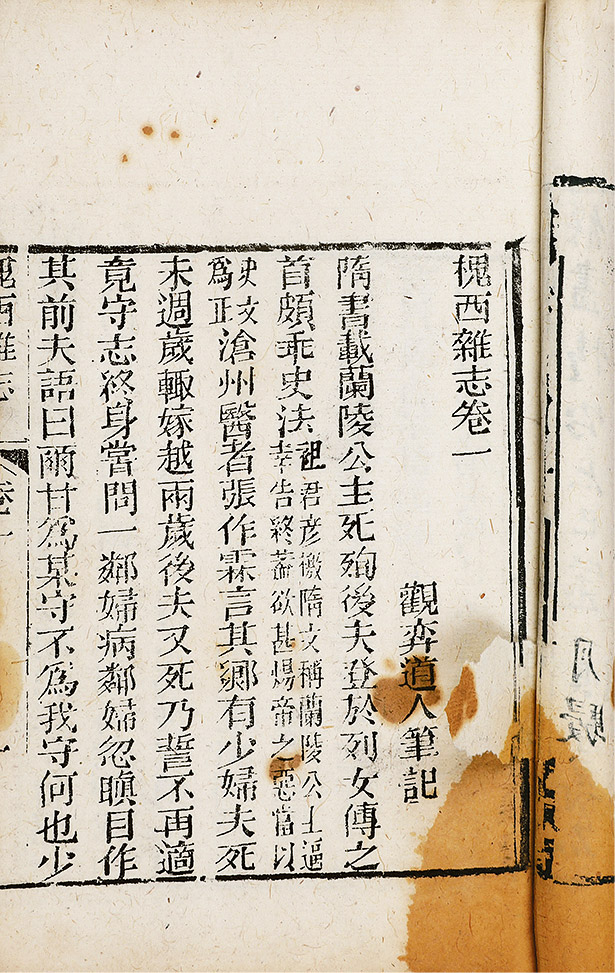 槐西雜志卷一
觀弈道人筆記
隋書載蘭陵公主死殉後夫登於列女傳之
首頗乖史法祖君彦檄隋文稱蘭陵公主逼幸告終葢欲甚煬帝之惡當以
史文爲正滄州醫者張作霖言其鄉有少婦夫死
未週歲輙嫁越兩歲後夫又死乃誓不再適
竟守志終身嘗問一鄰婦病鄰婦忽瞋目作
其前夫語曰爾甘爲某守不爲我守何也少
槐西雜志 卷一 一